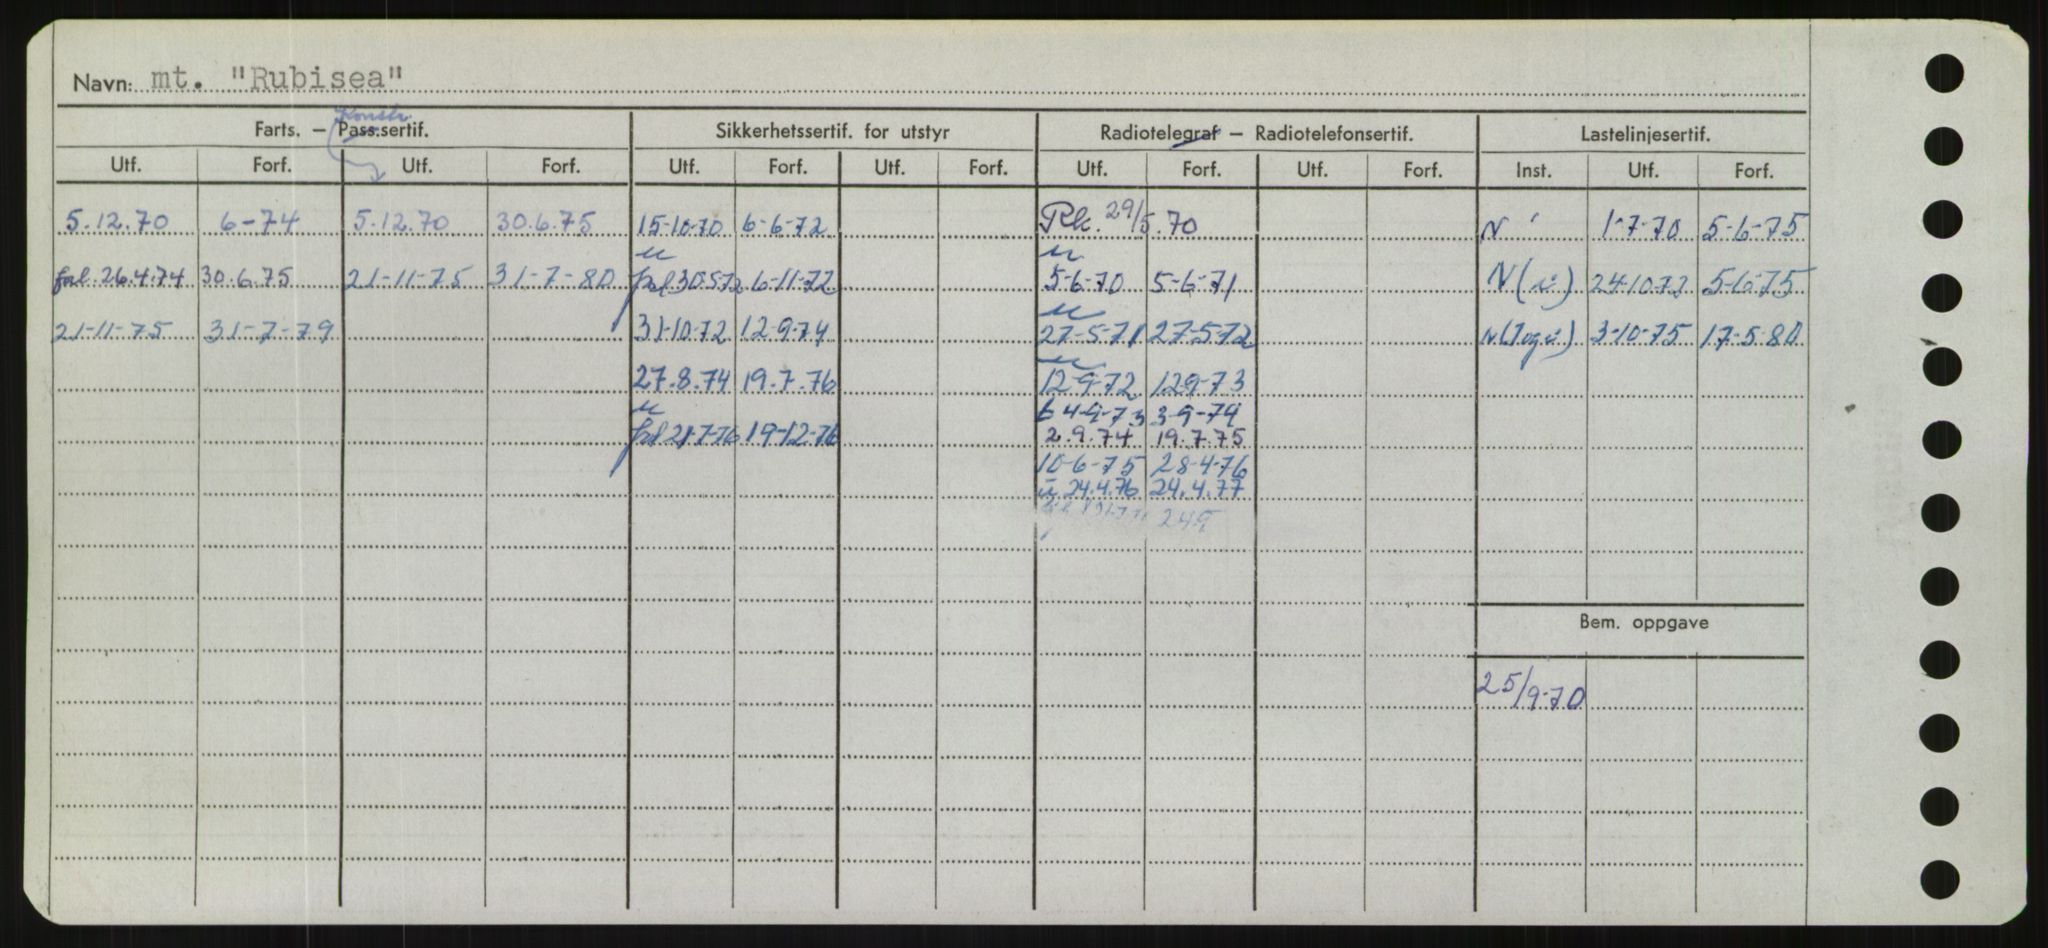 Navn: mt. "Rubisea"
Konstr.
Farts. — Pass.sertif. Sikkerhetssertif. for utstyr Radiotelegraf — Radiotelefonsertif. Lastelinjesertif.
Utf. Forf. Utf. Forf. Utf. Forf. Utf. Forf. Utf. Forf. Utf. Forf. Inst. Utf. Forf.
5.12.70 6-74 5.12.70 30.6.75 15-10-70 6-6-72 Rk. 29/5.70 N 1-7-70 5-6-75
u u
fral. 26.4.74 30.6.75 21-11-75 31-7-80 fral 30.5.72 6-11-72 5-6-70 5-6-71 N(ü) 24-10-72 5-6-75
u
21-11-75 31-7-79 31-10-72 12-9-74 27-5-71 27-5-72 N(Iogü) 3-10-75 17-5-80
u
27.8.74 19.7.76 12-9-72 12-9-73
u 4-9-73 3-9-74
fral 21-7-76 19-12-76 2.9.74 19.7.75
10-6-75 28-4-76
ü 24.4.76 24.4.77
Bem. oppgave
25/9-70